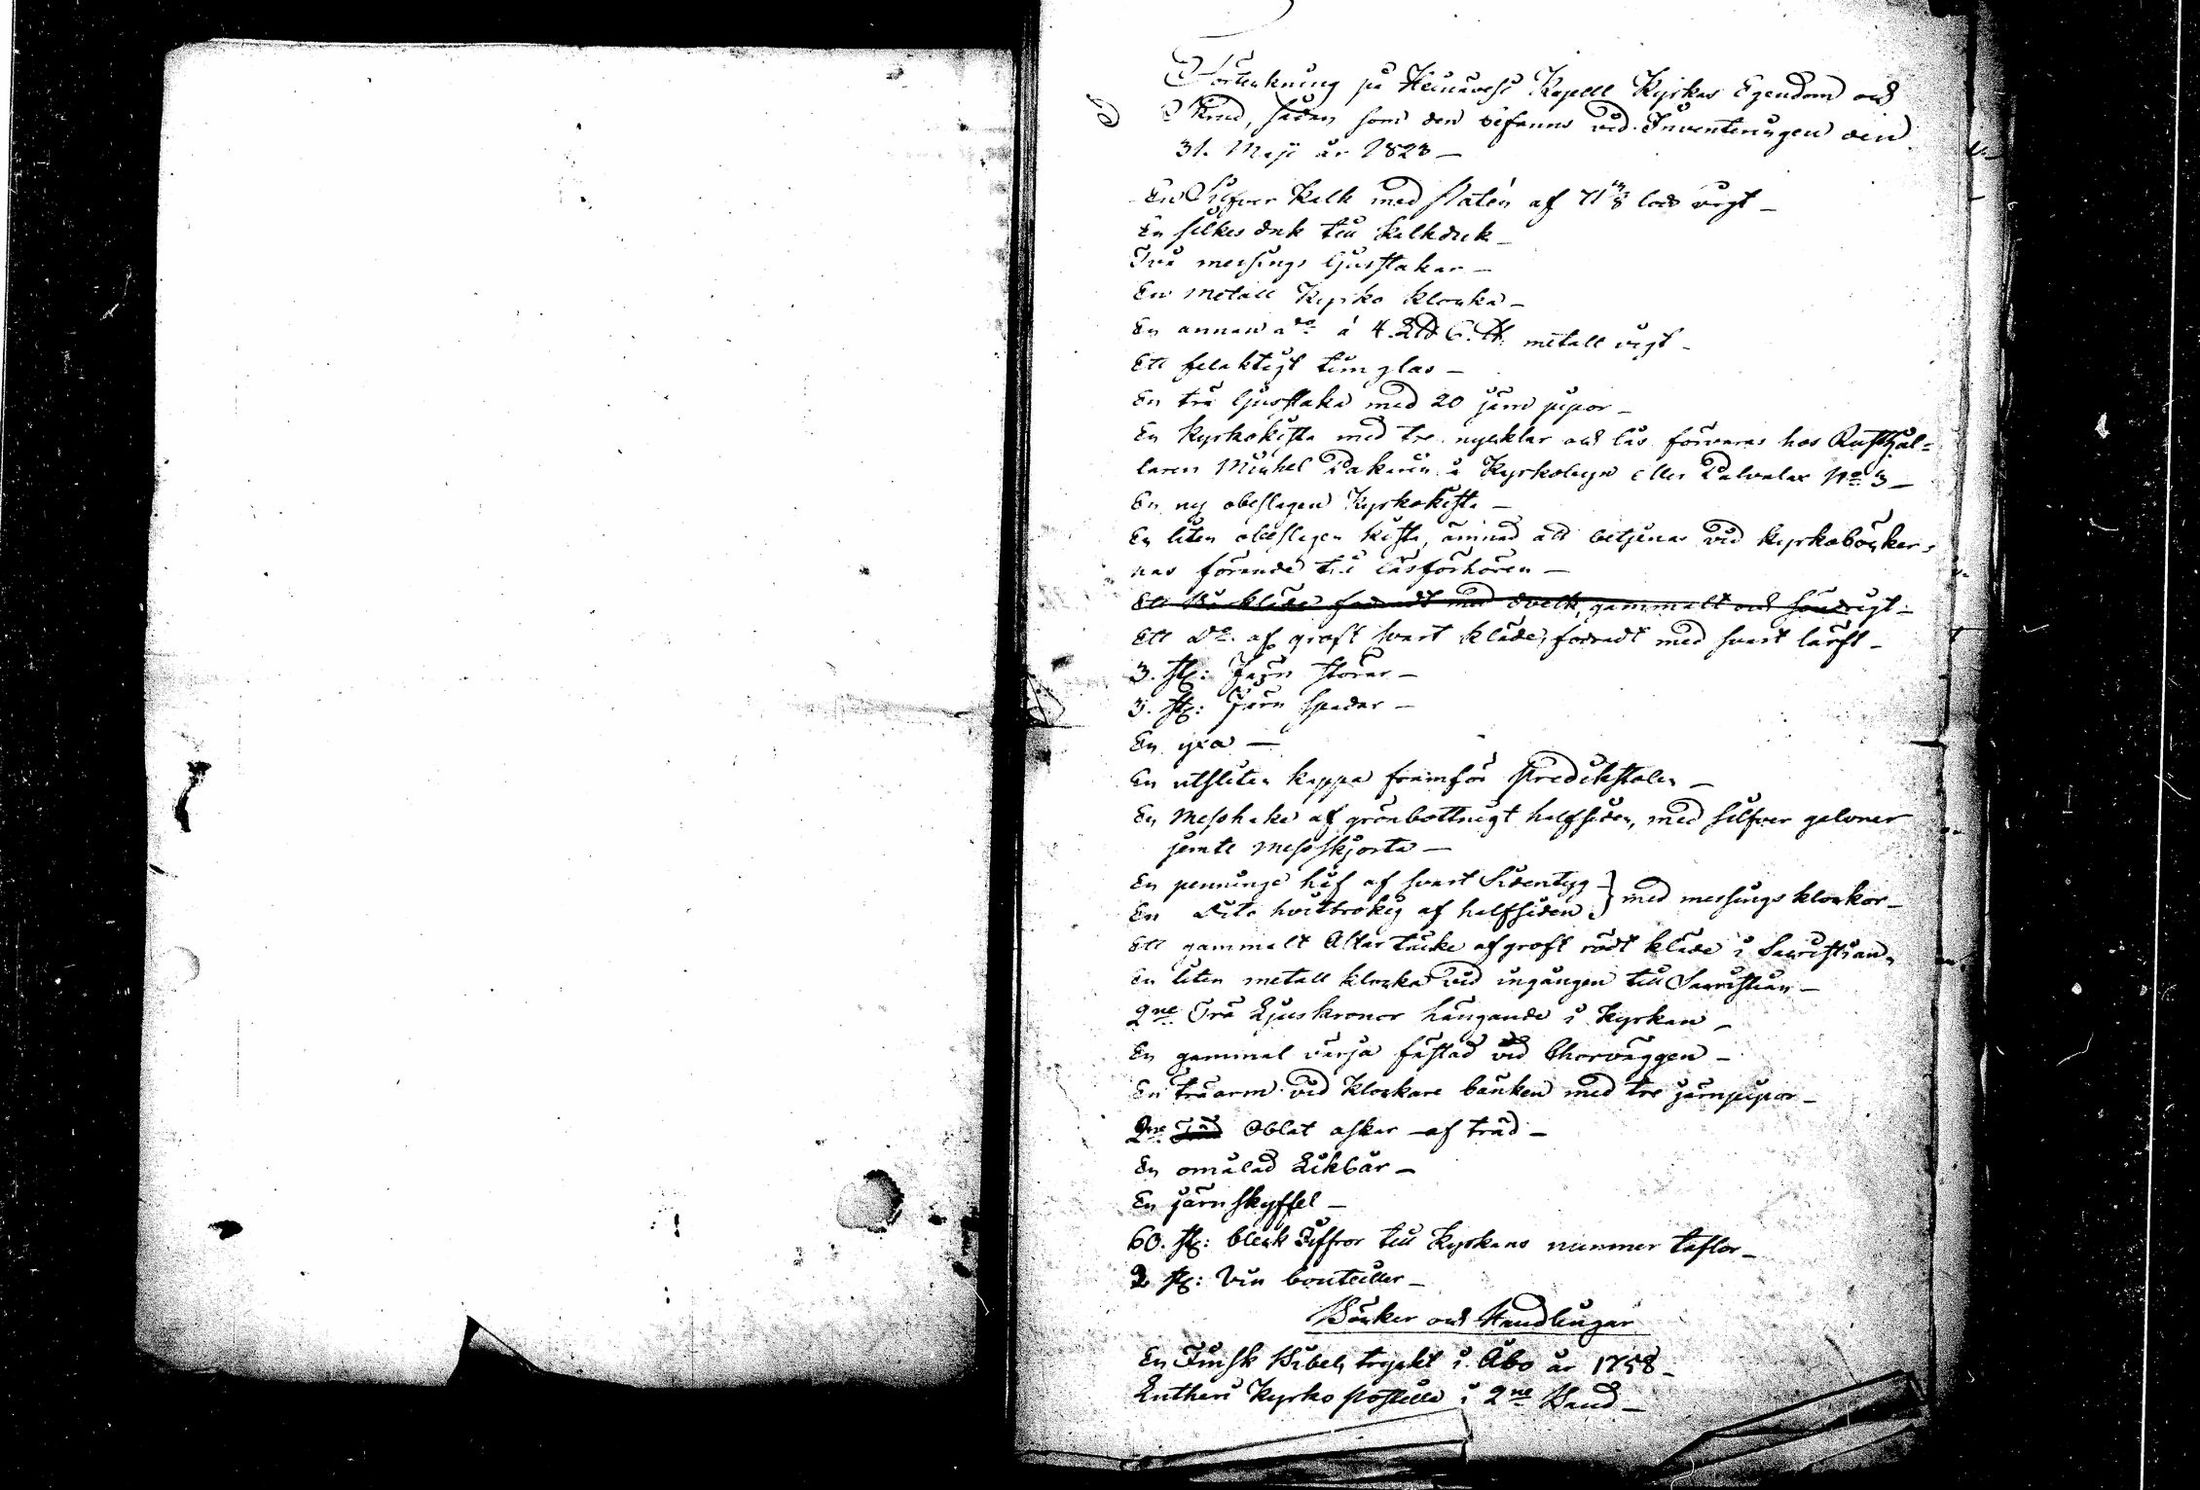 Förtekning på Heinävesi Kapell Kyrkas Egendom och
Skrud, sådan som den befanns vid Inventeringen den
31. Maji år 1823 –
En Silfver Kalk med Patén af 71 3/8 lods vigt –
En silkes duk till kalkduk –
Två messings ljusstakar –
En metall Kyrko klocka –
En annan do å 4. L℔ 6. ℔. metall vigt –
Ett felaktigt timglas –
En trä ljusstaka med 20 järn pipor –
En Kyrkokista med tre nycklar och lås förvaras hos Rusthål=
laren Michel Pakarin i Kyrkobyn eller Palvalax No 3 –
En ny obeslagen Kyrkokista –
En liten obeslagen kista, ämnad att betjenas vid kyrkoböcker=
nas förande till läsförhören –
Ett Bårkläde fodradt med dvelk, gammalt och söndrigt –
Ett Do. af groft svart kläde, fodradt med svart lärft –
3. st: Järn störar –
3. st: Järn spadar –
En yxa –
En utsliten kappa framför Predikstolen –
En Messhake af grönbottnigt halfsiden, med silfver galoner
jemte messskjorta –
En penninge håf af svart Sidentyg – } med messings klockor –
En Dito hvitbrokig af halfsiden
Ett gammalt Altartäcke af groft rödt kläde i Sacristian,
En liten metall klocka vid ingången till Sacristian –
2ne Trä Ljuskronor hängande i Kyrkan –
En gammal värja fästad vid Chorväggen –
En träarm vid Klockare bänken med tre järnpipor –
2ne Träd Oblat askar – af träd –
En omålad Likbår –
En järnskyffel –
60. st: bleck Ziffror till Kyrkans nummer taflor –
2 st: Vin bouteiller –
Böcker och Handlingar
En Finsk Bibel, tryckt i Åbo år 1758 –
Lutheri Kyrko Postilla i 2ne Band –